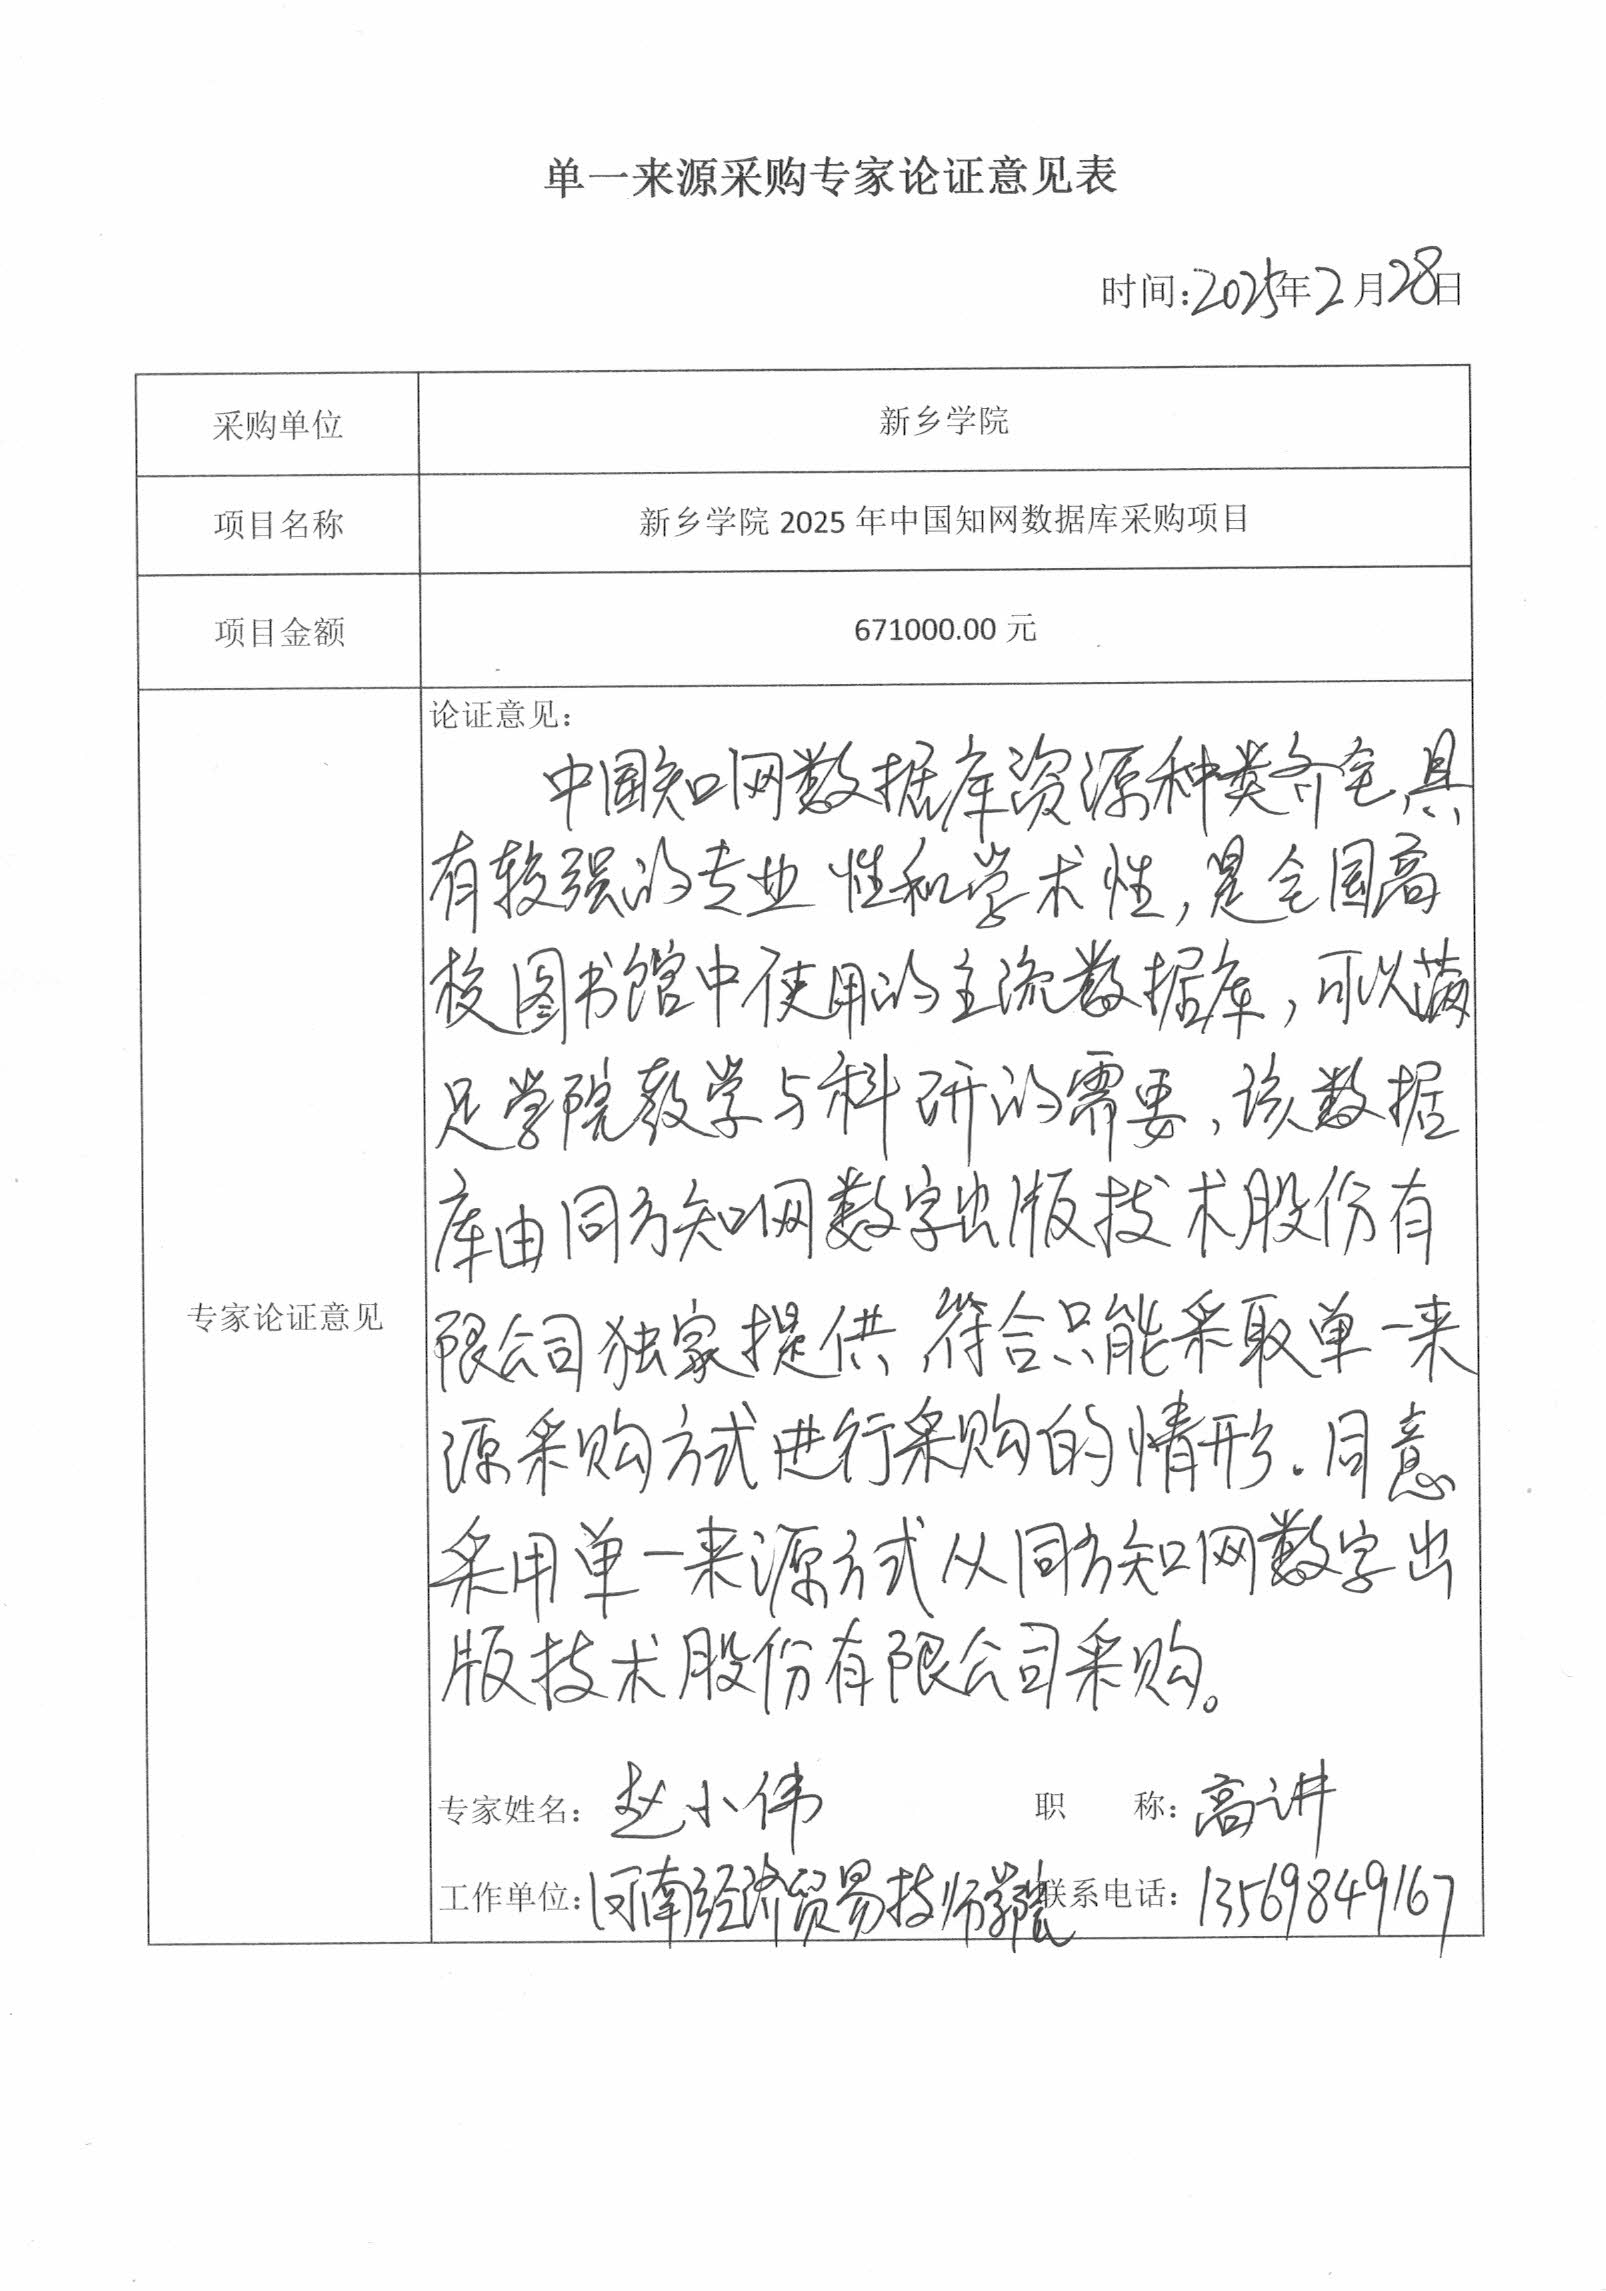 单一来源采购专家论证意见表
时间:2025年2月28日
采购单位 新乡学院
项目名称 新乡学院 2025 年中国知网数据库采购项目
项目金额 671000.00 元
专家论证意见
论证意见:
中国知网数据库资源种类齐全,具
有较强的专业性和学术性,是全国高
校图书馆中使用的主流数据库,可以满
足学院教学与科研的需要,该数据
库由同方知网数字出版技术股份有
限公司独家提供,符合只能采取单一来
源采购方式进行采购的情形.同意
采用单一来源方式从同方知网数字出
版技术股份有限公司采购。
专家姓名: 赵小伟 职 称: 高讲
工作单位: 河南经济贸易技师学院 联系电话: 13569849167